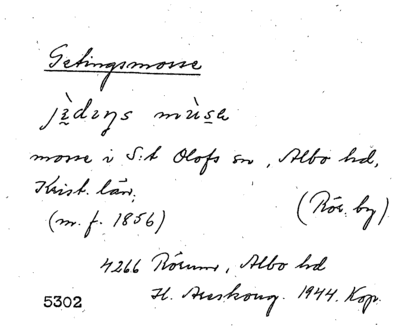 Getingsmosse
jìdıŋs mùsa
mosse i S:t Olofs sn, Albo hd,
Krist. län,
(m. f. 1856) (Rör. by)
4266 Rörum, Albo hd
H. 1944. Kop.
5302